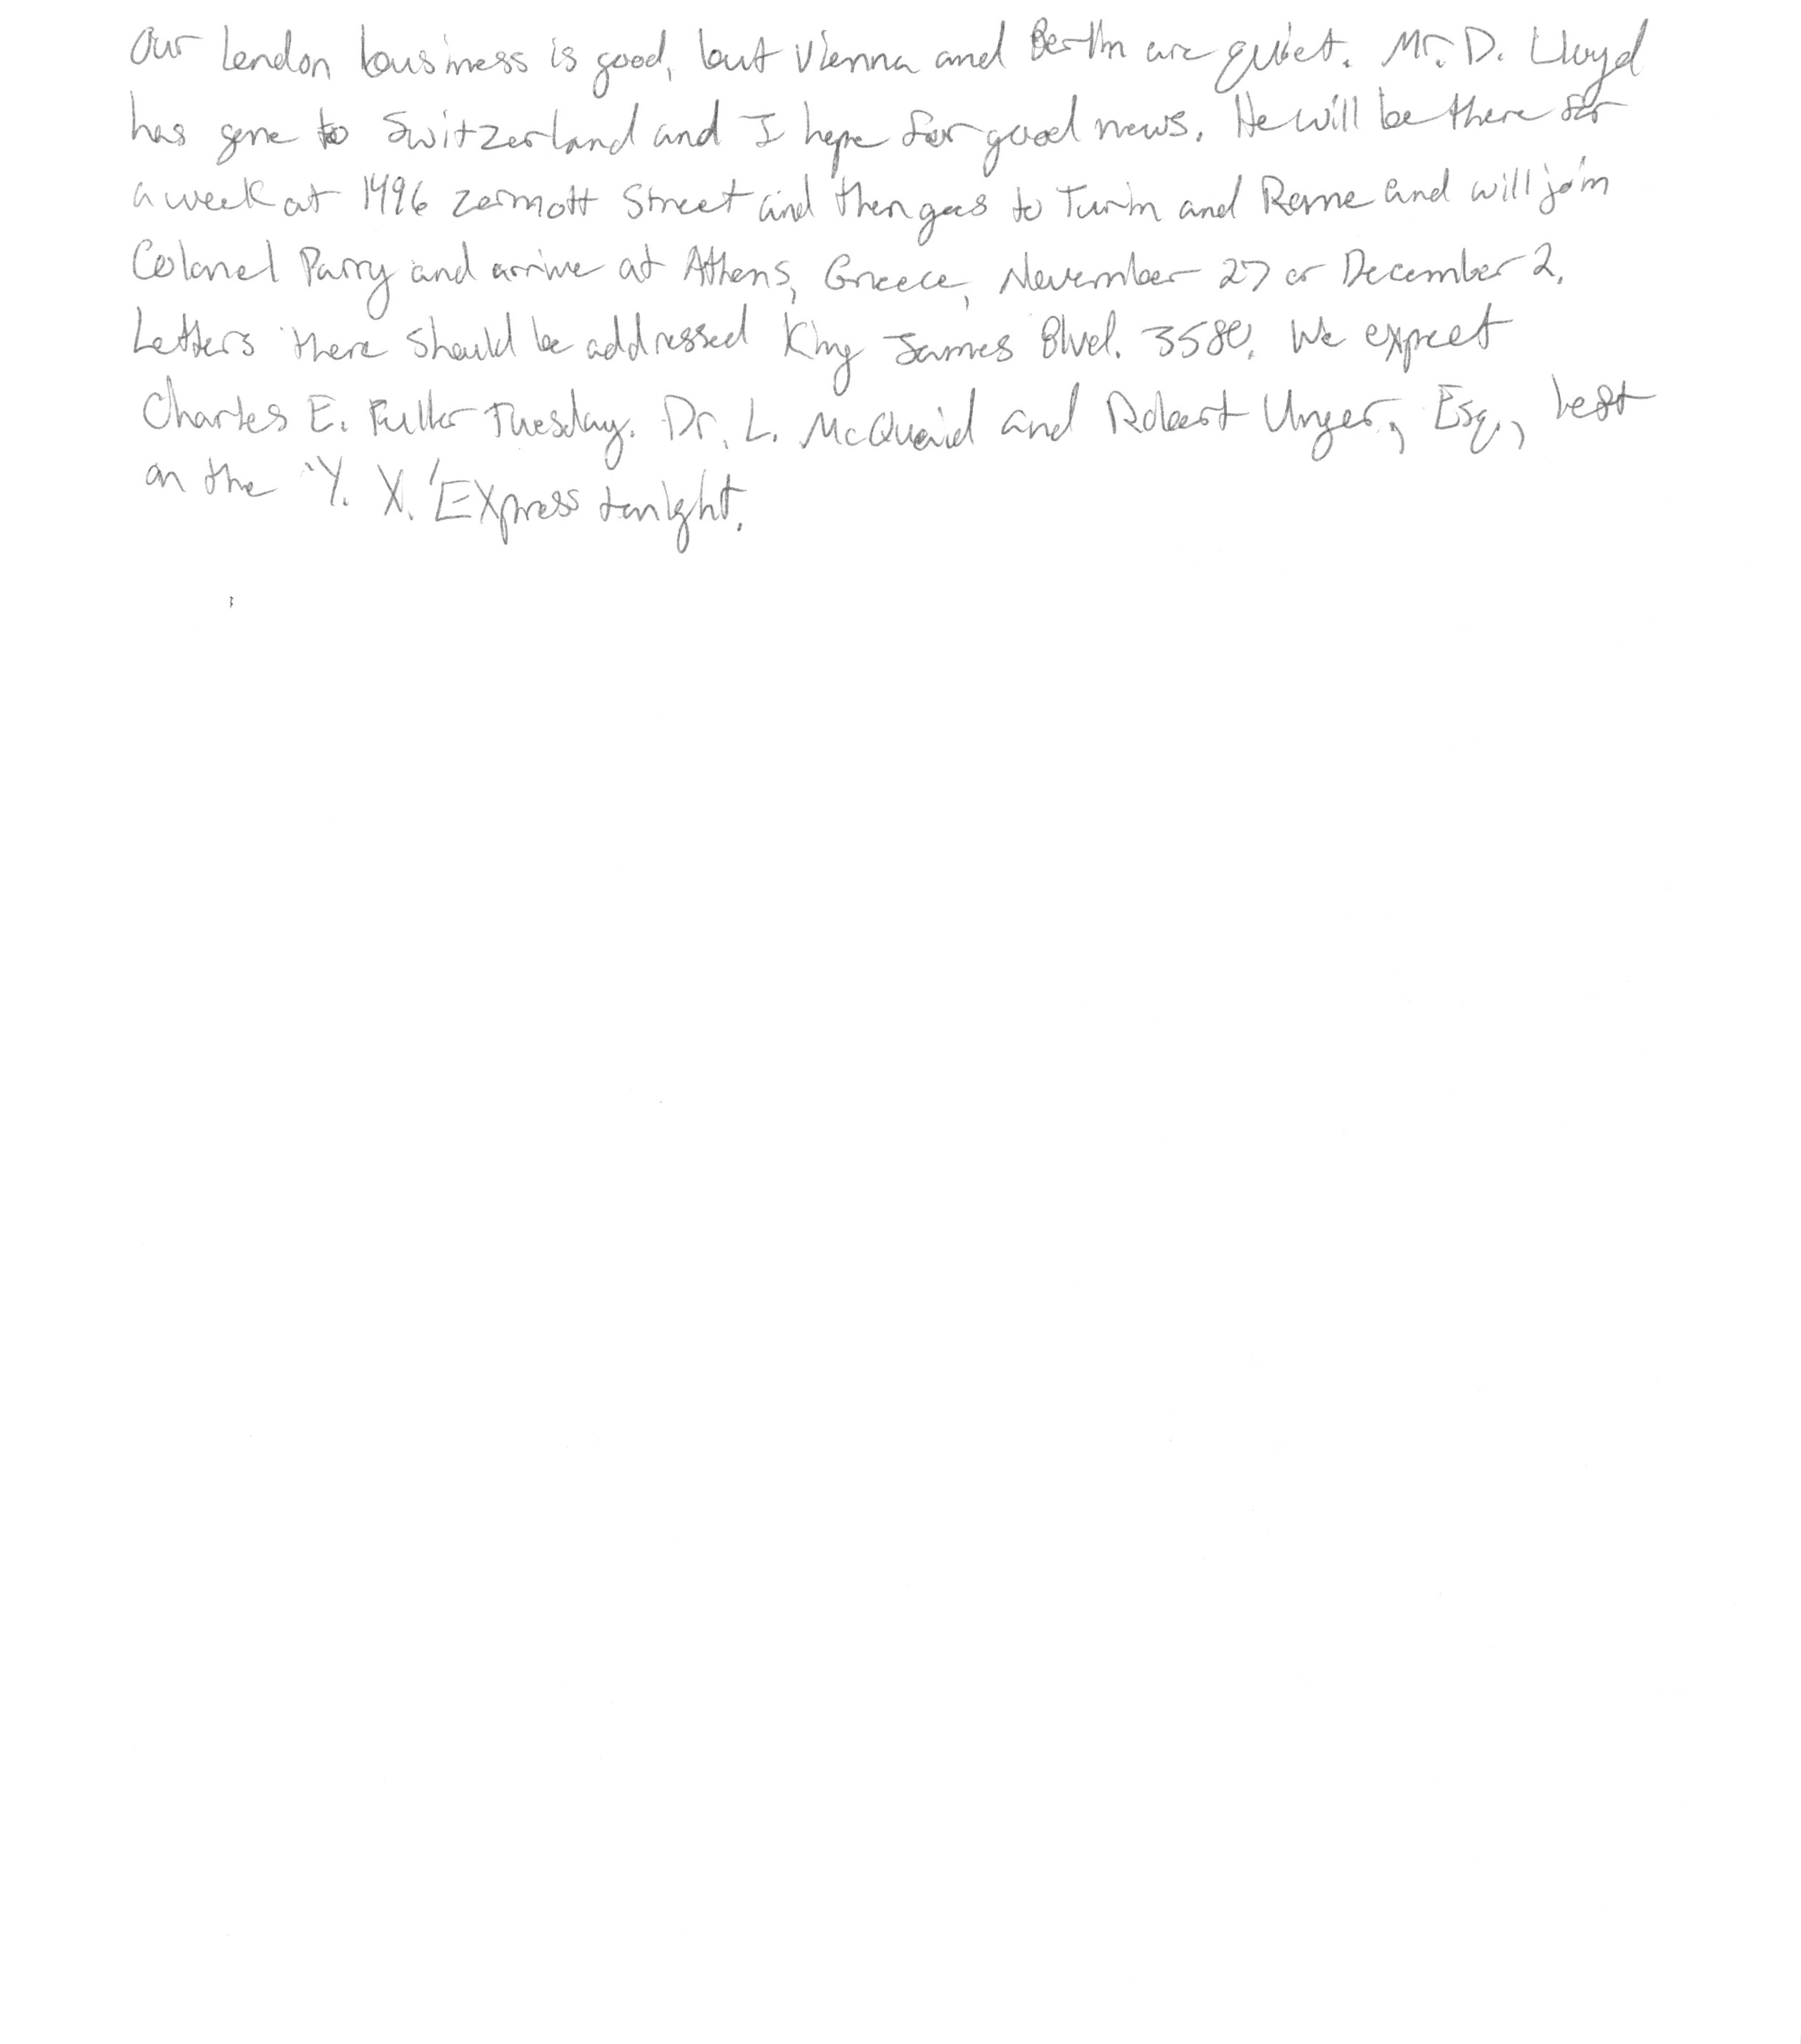 Our London business is good, but Vienna and Berlin are quiet. Mr. D. Lloyd
has gone to Switzerland and I hope for good news. He will be there for
a week at 1496 Zermott Street and then goes to Turin and Rome and will join
Colonel Parry and arrive at Athens, Greece, November 27 or December 2.
Letters there should be addressed King James Blvd. 3580. We expect
Charles E. Fuller Tuesday. Dr. L. McQuaid and Robert Unger, Esq., left
on the 'Y. X.' Express tonight.